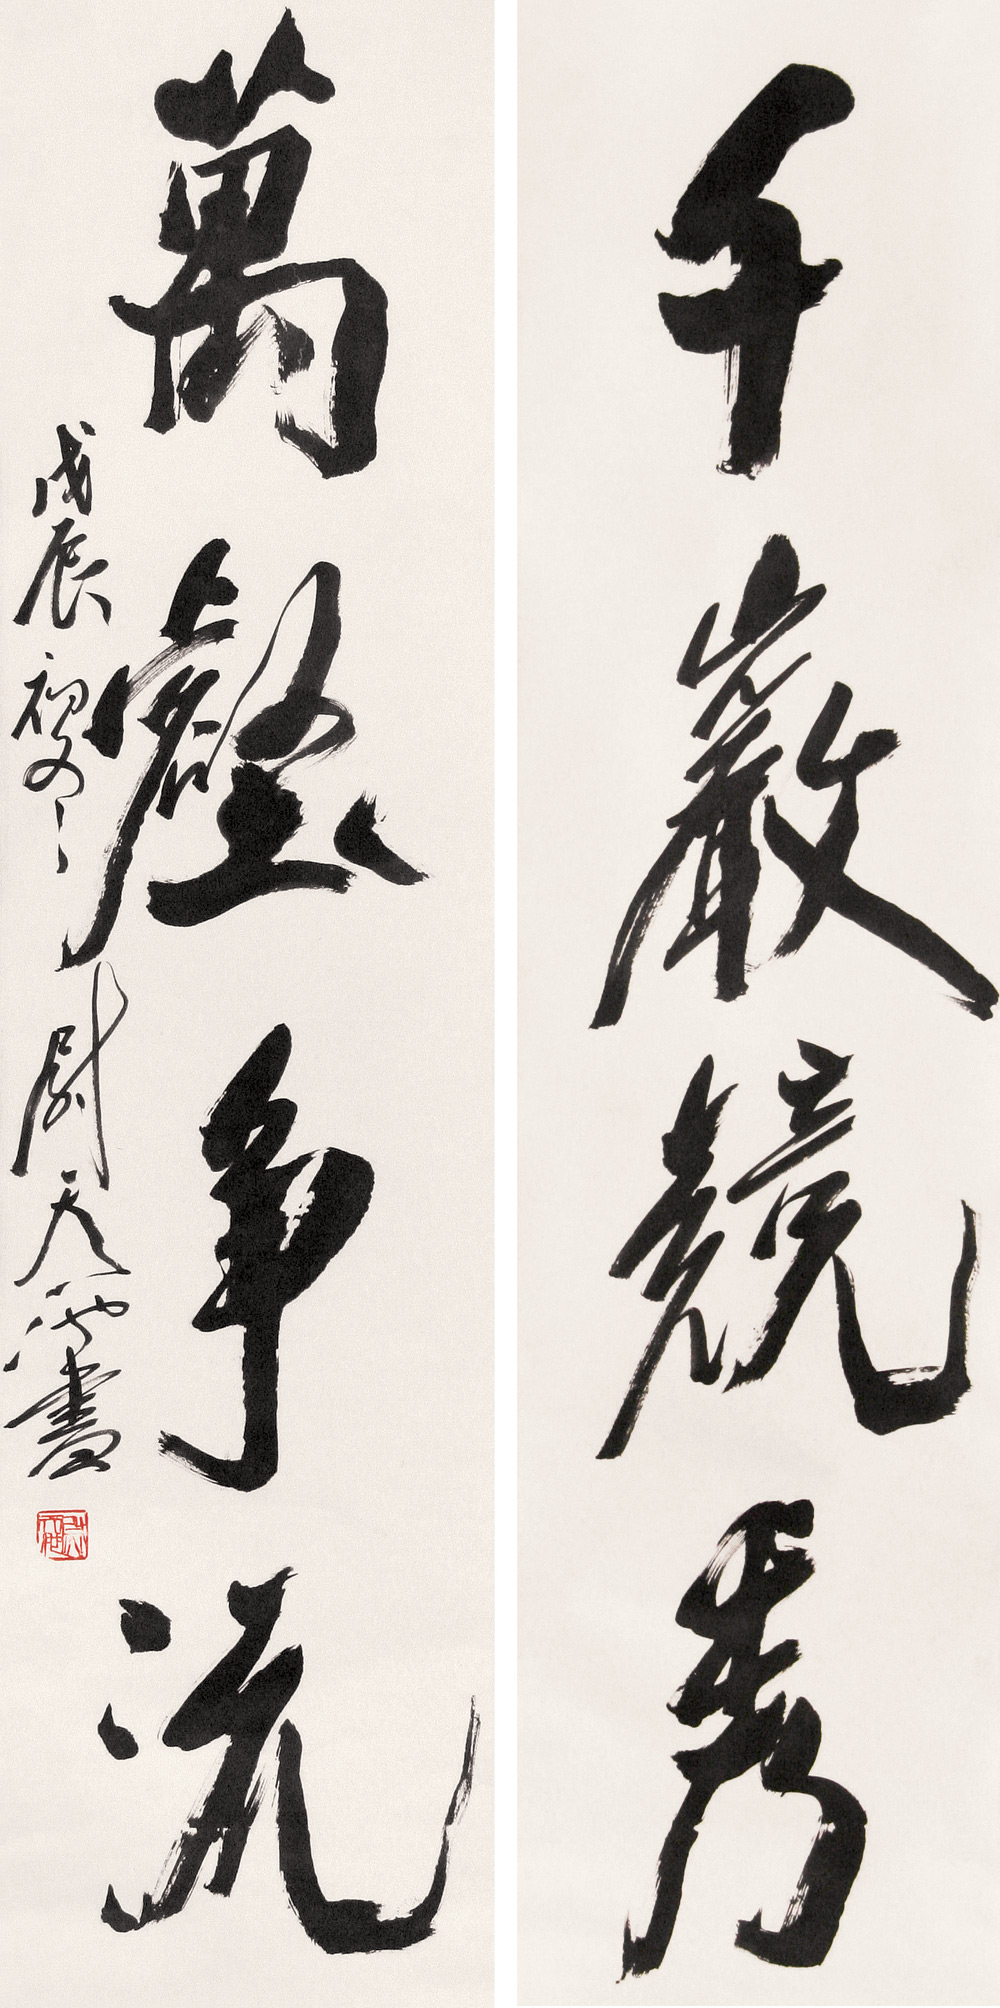 千巖競秀
萬壑爭流
戊辰初夏尉天池書